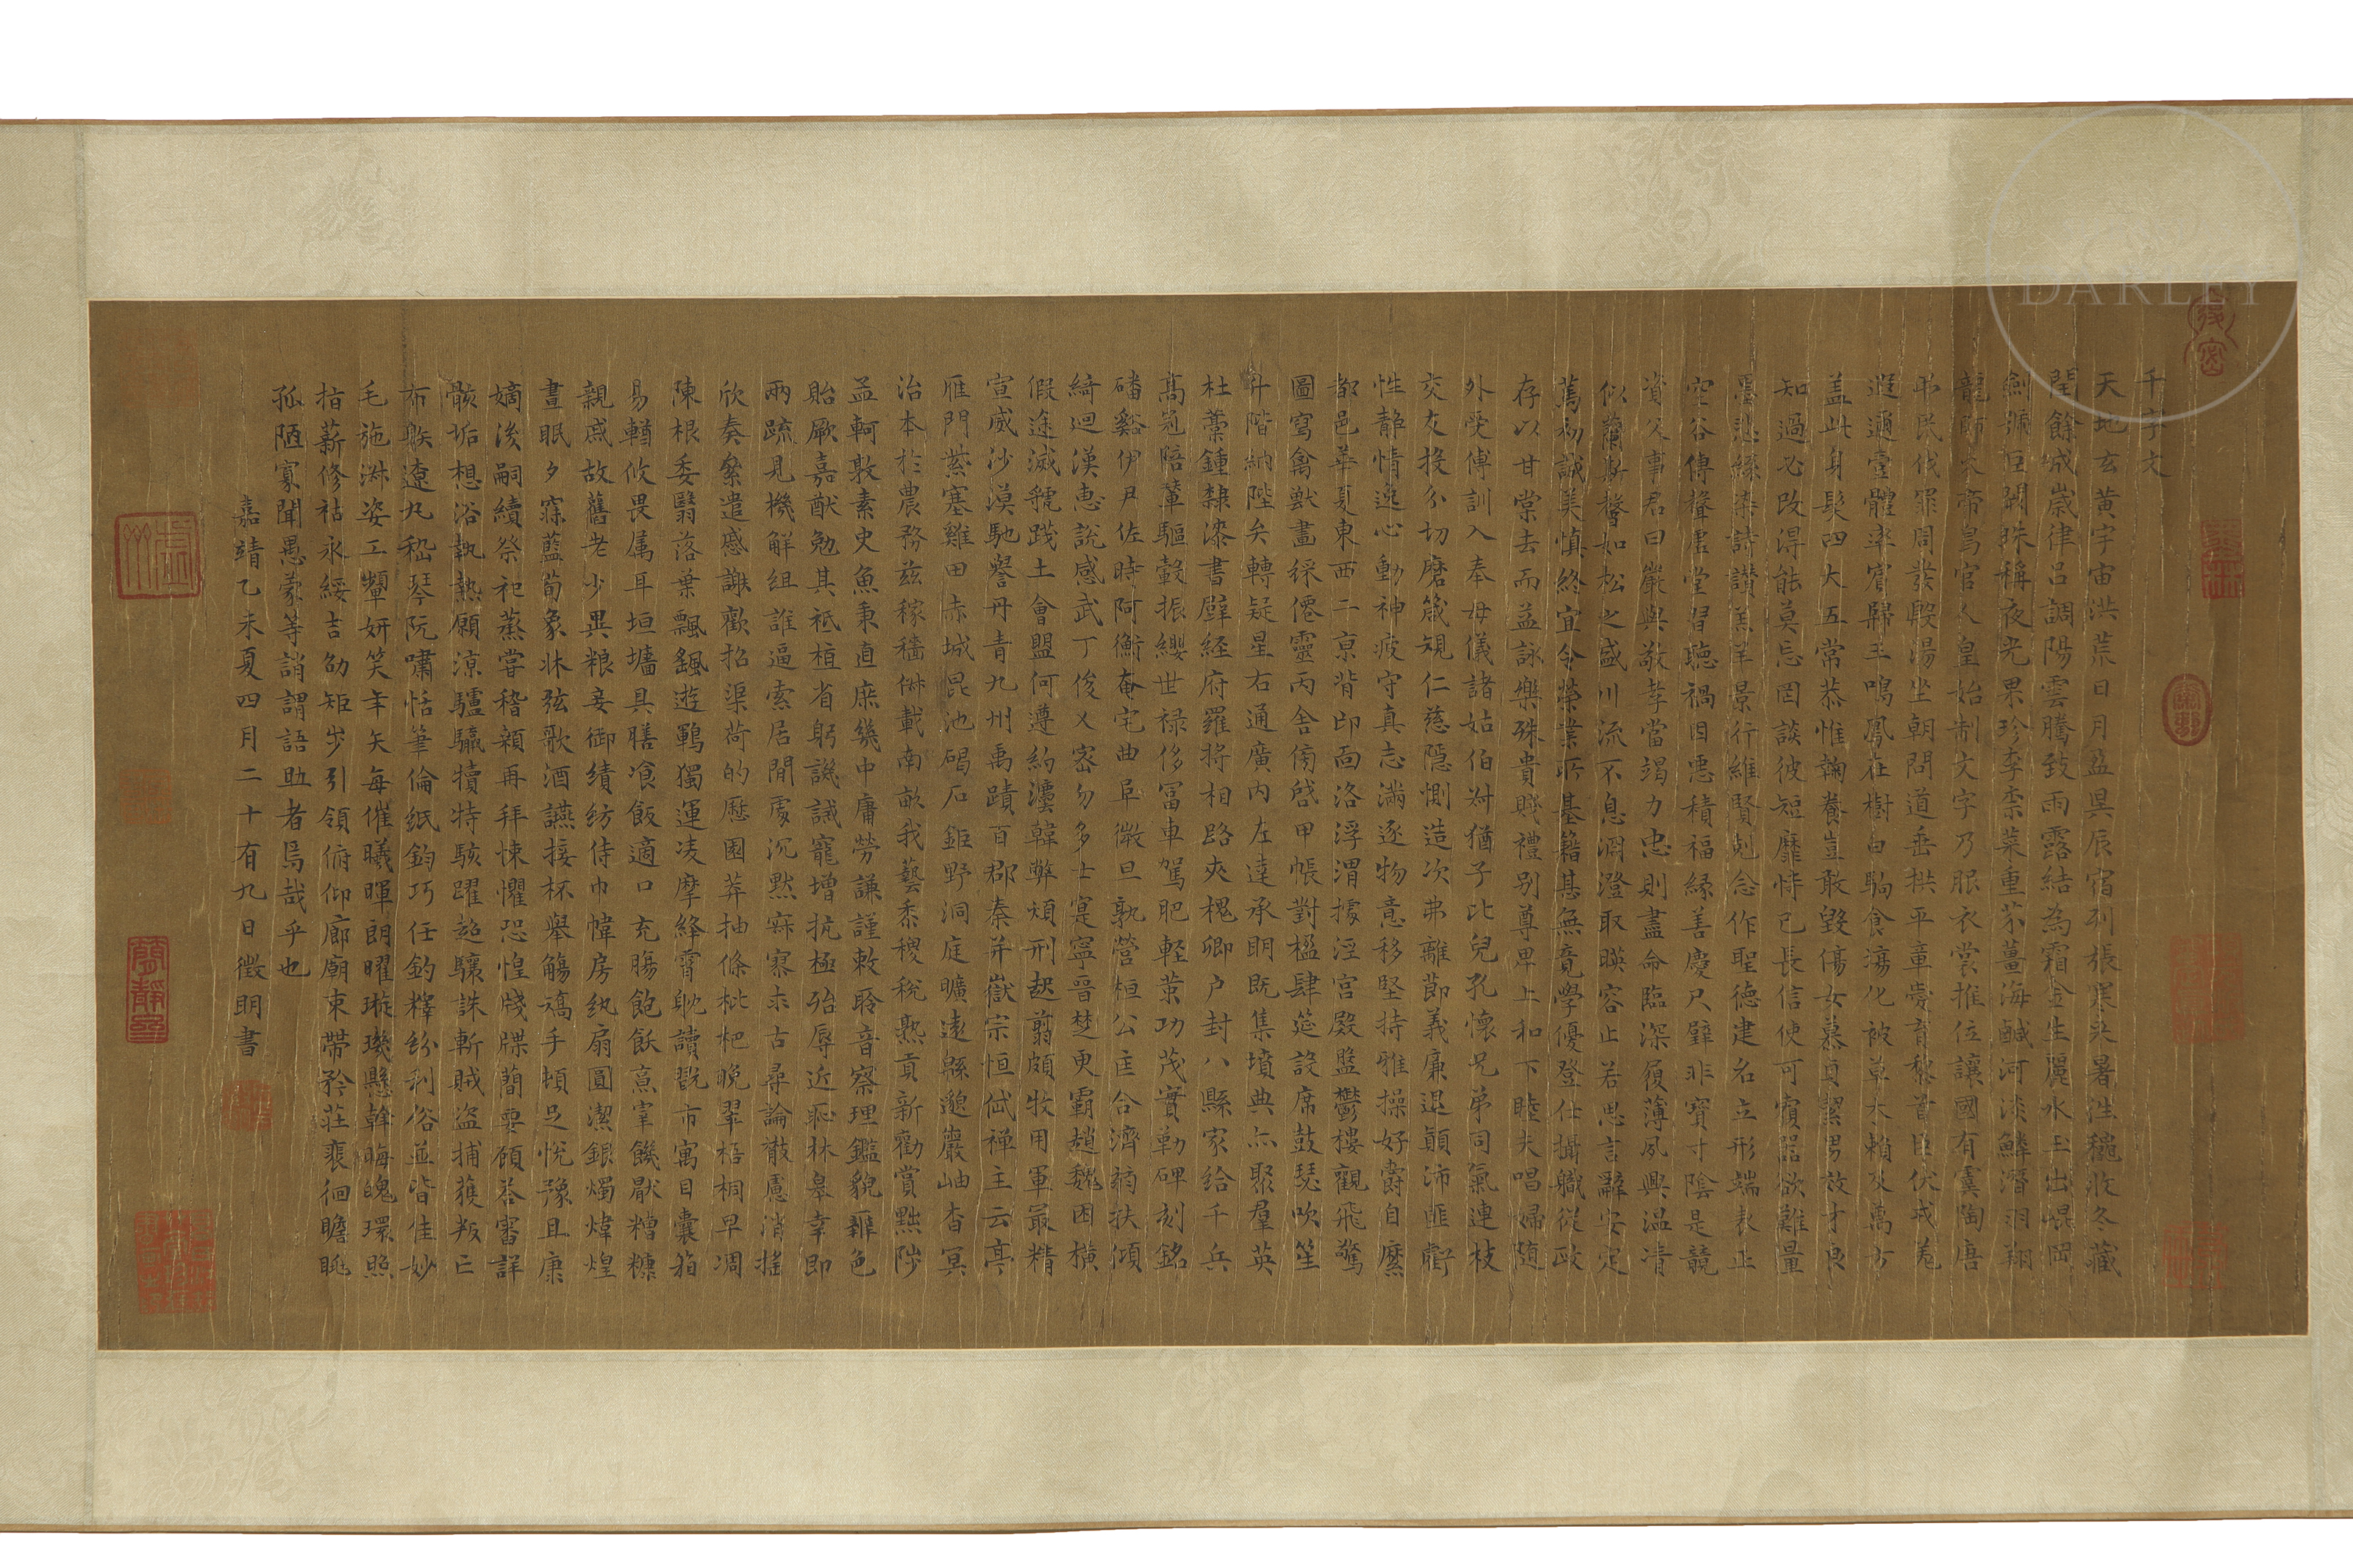 千字文
天地玄黃宇宙洪荒日月盈昃辰宿列張寒來暑往穐收冬藏
閏餘成歲律呂調陽雲騰致雨露結為霜金生麗水玉出崐岡
劍號巨闕珠稱夜光果珍李柰菜重芥薑海鹹河淡鱗潛羽翔
龍師火帝鳥官人皇始制文字乃服衣裳推位讓國有虞陶唐
弔民伐罪周發殷湯坐朝問道垂拱平章愛育黎首臣伏戎羌
遐邇壹體率賓歸王鳴鳳在樹白駒食場化被草木賴及萬方
蓋此身髮四大五常恭惟鞠養豈敢毀傷女慕貞潔男效才良
知過必改得能莫忘罔談彼短靡恃己長信使可覆器欲難量
墨悲絲染詩讚羔羊景行維賢剋念作聖德建名立形端表正
空谷傳聲虛堂習聽禍因惡積福緣善慶尺璧非寶寸陰是競
資父事君曰嚴與敬孝當竭力忠則盡命臨深履薄夙興溫凊
似蘭斯馨如松之盛川流不息淵澄取暎容止若思言辭安定
篤初誠美慎終宜令榮業所基籍甚無竟學優登仕攝職從政
存以甘棠去而益詠樂殊貴賤禮別尊卑上和下睦夫唱婦隨
外受傅訓入奉母儀諸姑伯叔猶子比兒孔懷兄弟同氣連枝
交友投分切磨箴規仁慈隱惻造次弗離節義廉退顛沛匪虧
性靜情逸心動神疲守真志滿逐物意移堅持雅操好爵自縻
都邑華夏東西二京背邙面洛浮渭據涇宮殿盤鬱樓觀飛驚
圖寫禽獸畫綵僊靈丙舍傍啓甲帳對楹肆筵設席鼓瑟吹笙
升階納陛弁轉疑星右通廣內左達承明既集墳典亦聚羣英
杜藁鍾隸漆書壁経府羅將相路夾槐卿户封八縣家給千兵
高冠陪輦驅轂振纓世祿侈富車駕肥輕策功茂實勒碑刻銘
磻谿伊尹佐時阿衡奄宅曲阜微旦孰營桓公匡合濟弱扶傾
綺迴漢惠說感武丁俊乂密勿多士寔寧晉楚更霸趙魏困橫
假途滅虢踐土會盟何遵約灋韓弊煩刑起翦頗牧用軍最精
宣威沙漠馳譽丹青九州禹蹟百郡秦并嶽宗恒岱禪主云亭
雁門紫塞雞田赤城昆池碣石鉅野洞庭曠遠緜邈巖岫杳冥
治本於農務茲稼穡俶載南畝我藝黍稷稅熟貢新勸賞黜陟
孟軻敦素史魚秉直庶幾中庸勞謙謹敕聆音察理鑑貌辨色
貽厥嘉猷勉其祗植省躬譏誡寵增抗極殆辱近恥林皋幸即
兩疏見機解組誰逼索居閒處沉默寂寥求古尋論散慮逍遙
欣奏累遣慼謝歡招渠荷的歷園莽抽條枇杷晚翠梧桐早凋
陳根委翳落葉飄颻遊鵾獨運凌摩絳霄耽讀翫市寓目囊箱
易輶攸畏屬耳垣墻具膳飡飯適口充腸飽飫烹宰饑厭糟糠
親戚故舊老少異粮妾御績紡侍巾帷房紈扇圓潔銀燭煒煌
晝眠夕寐藍筍象牀弦歌酒讌接杯舉觴矯手頓足悅豫且康
嫡後嗣續祭祀蒸嘗稽顙再拜悚懼恐惶牋牒簡要顧荅審詳
骸垢想浴執熱願涼驢騾犢特駭躍超驤誅斬賊盜捕獲叛亡
布躲遼丸嵇琴阮嘯恬筆倫紙鈞巧任釣釋紛利俗並皆佳妙
毛施淑姿工顰妍笑年矢每催曦暉朗曜璇璣懸斡晦魄環照
指薪修祜永綏吉劭矩步引領俯仰廊廟束帶矜莊裴徊瞻眺
孤陋寡聞愚蒙等誚謂語助者焉哉乎也
嘉靖乙未夏四月二十有九日徵明書
DARLEY